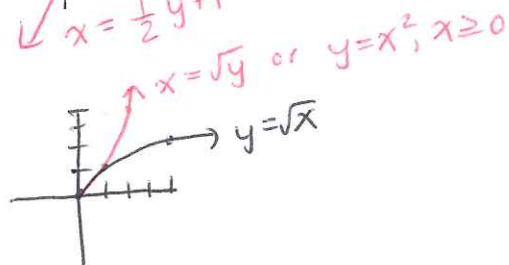 x = 1/2 y + 1
x = √y or y = x², x ≥ 0
y = √x